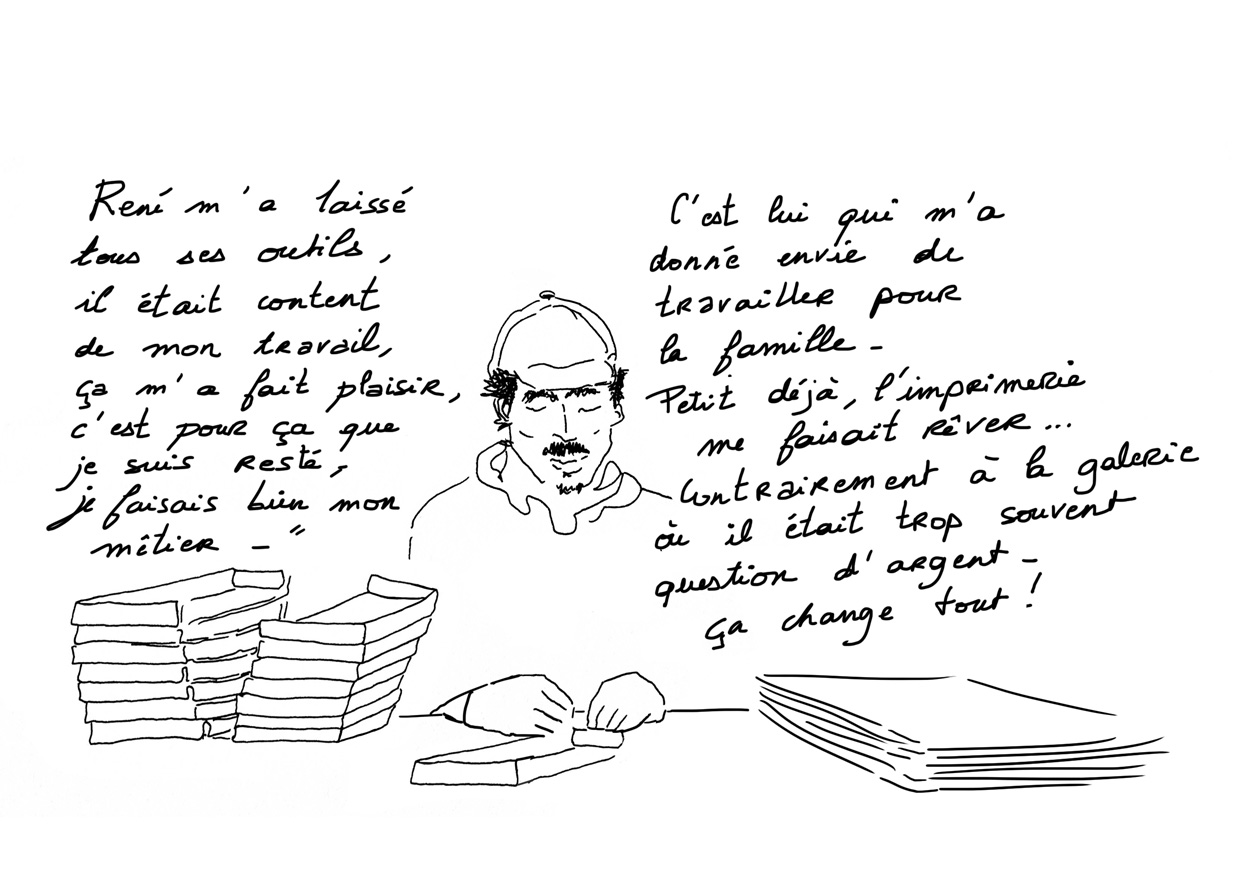 René m'a laissé
tous ses outils,
il était content
de mon travail,
ça m'a fait plaisir,
c'est pour ça que
je suis resté,
je faisais bien mon
métier - "
C'est lui qui m'a
donné envie de
travailler pour
la famille -
Petit déjà, l'imprimerie
me faisait rêver...
Contrairement à la galerie
où il était trop souvent
question d'argent -
ça change tout !